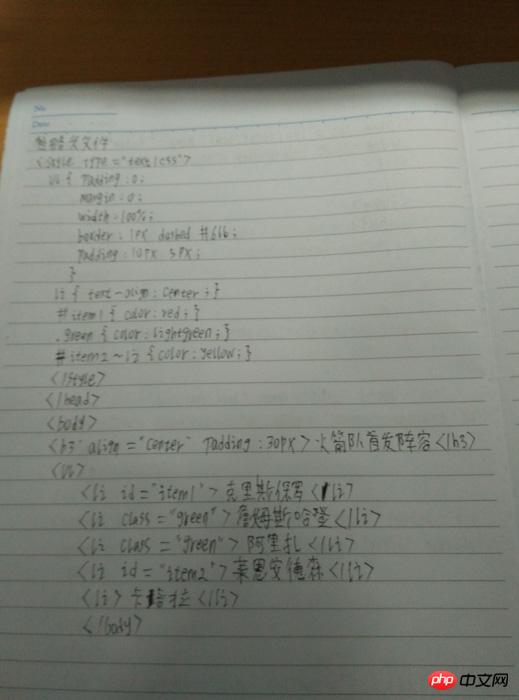 No
Date
忽略头文件
<style type="text/css">
ul { padding:0;
margin:0;
width:100%;
border:1px dashed #666;
padding:10px 5px;
}
li { text-align:center;}
#item1 { color:red;}
.green { color:lightgreen;}
#item2~li { color:yellow;}
</style>
</head>
<body>
<h3 align="center" padding:30px>火箭队首发阵容</h3>
<ul>
<li id="item1">克里斯保罗</li>
<li class="green">詹姆斯哈登</li>
<li class="green">阿里扎</li>
<li id="item2">莱恩安德森</li>
<li>卡培拉</li>
</body>
php 中文网